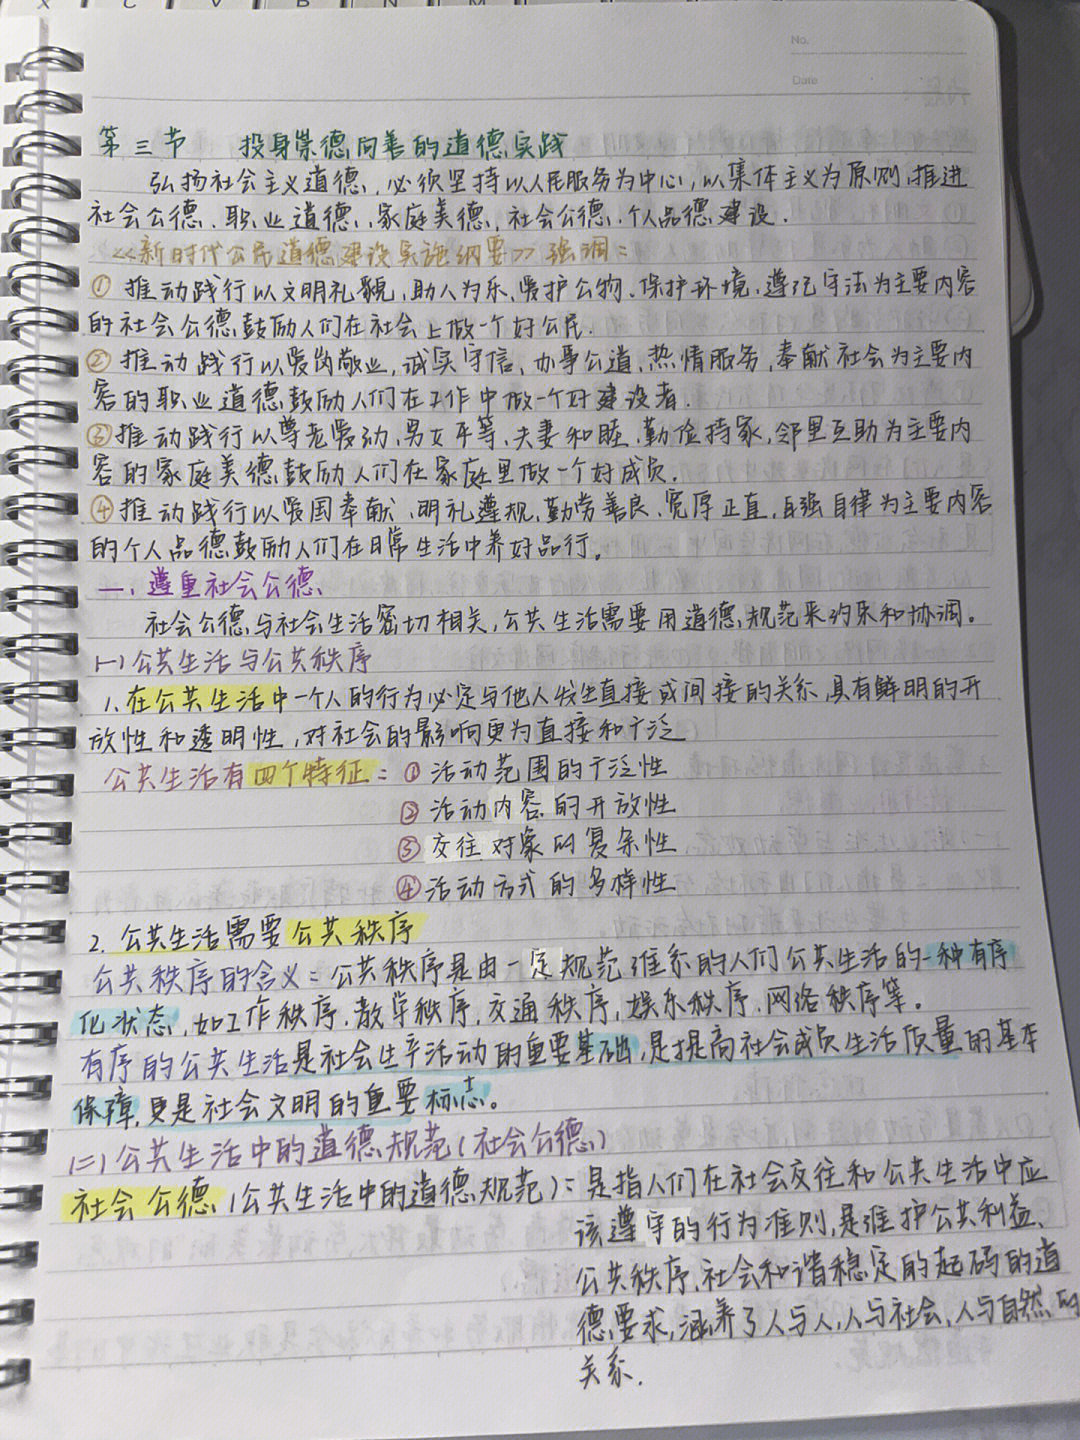 X C V B N M
No.
Date
第三节 投身崇德向善的道德实践
弘扬社会主义道德,必须坚持以人民服务为中心,以集体主义为原则,推进
社会公德、职业道德、家庭美德、社会公德、个人品德建设.
《新时代公民道德建设实施纲要》强调:
① 推动践行以文明礼貌,助人为乐,爱护公物、保护环境,遵纪守法为主要内容
的社会公德,鼓励人们在社会上做一个好公民.
② 推动践行以爱岗敬业,诚实守信、办事公道,热情服务,奉献社会为主要内
容的职业道德,鼓励人们在工作中做一个好建设者.
③ 推动践行以尊老爱幼,男女平等、夫妻和睦、勤俭持家,邻里互助为主要内
容的家庭美德,鼓励人们在家庭里做一个好成员.
④ 推动践行以爱国奉献、明礼遵规,勤劳善良、宽厚正直,自强自律为主要内容
的个人品德,鼓励人们在日常生活中养好品行。
一、遵重社会公德
社会公德与社会生活密切相关,公共生活需要用道德规范来约束和协调。
(一)公共生活与公共秩序
1.在公共生活中一个人的行为必定与他人发生直接或间接的关系,具有鲜明的开
放性和透明性,对社会的影响更为直接和广泛
公共生活有四个特征:① 活动范围的广泛性
② 活动内容的开放性
③ 交往对象的复杂性
④ 活动方式的多样性
2. 公共生活需要公共秩序
公共秩序的含义:公共秩序是由一定规范维系的人们公共生活的一种有序
化状态,如工作秩序、教学秩序,交通秩序,娱乐秩序、网络秩序等。
有序的公共生活是社会生产活动的重要基础,是提高社会成员生活质量的基本
保障,更是社会文明的重要标志。
(二)公共生活中的道德规范(社会公德)
社会公德(公共生活中的道德规范):是指人们在社会交往和公共生活中应
该遵守的行为准则,是维护公共利益、
公共秩序,社会和谐稳定的起码的道
德要求,涵养了人与人,人与社会,人与自然的
关系.